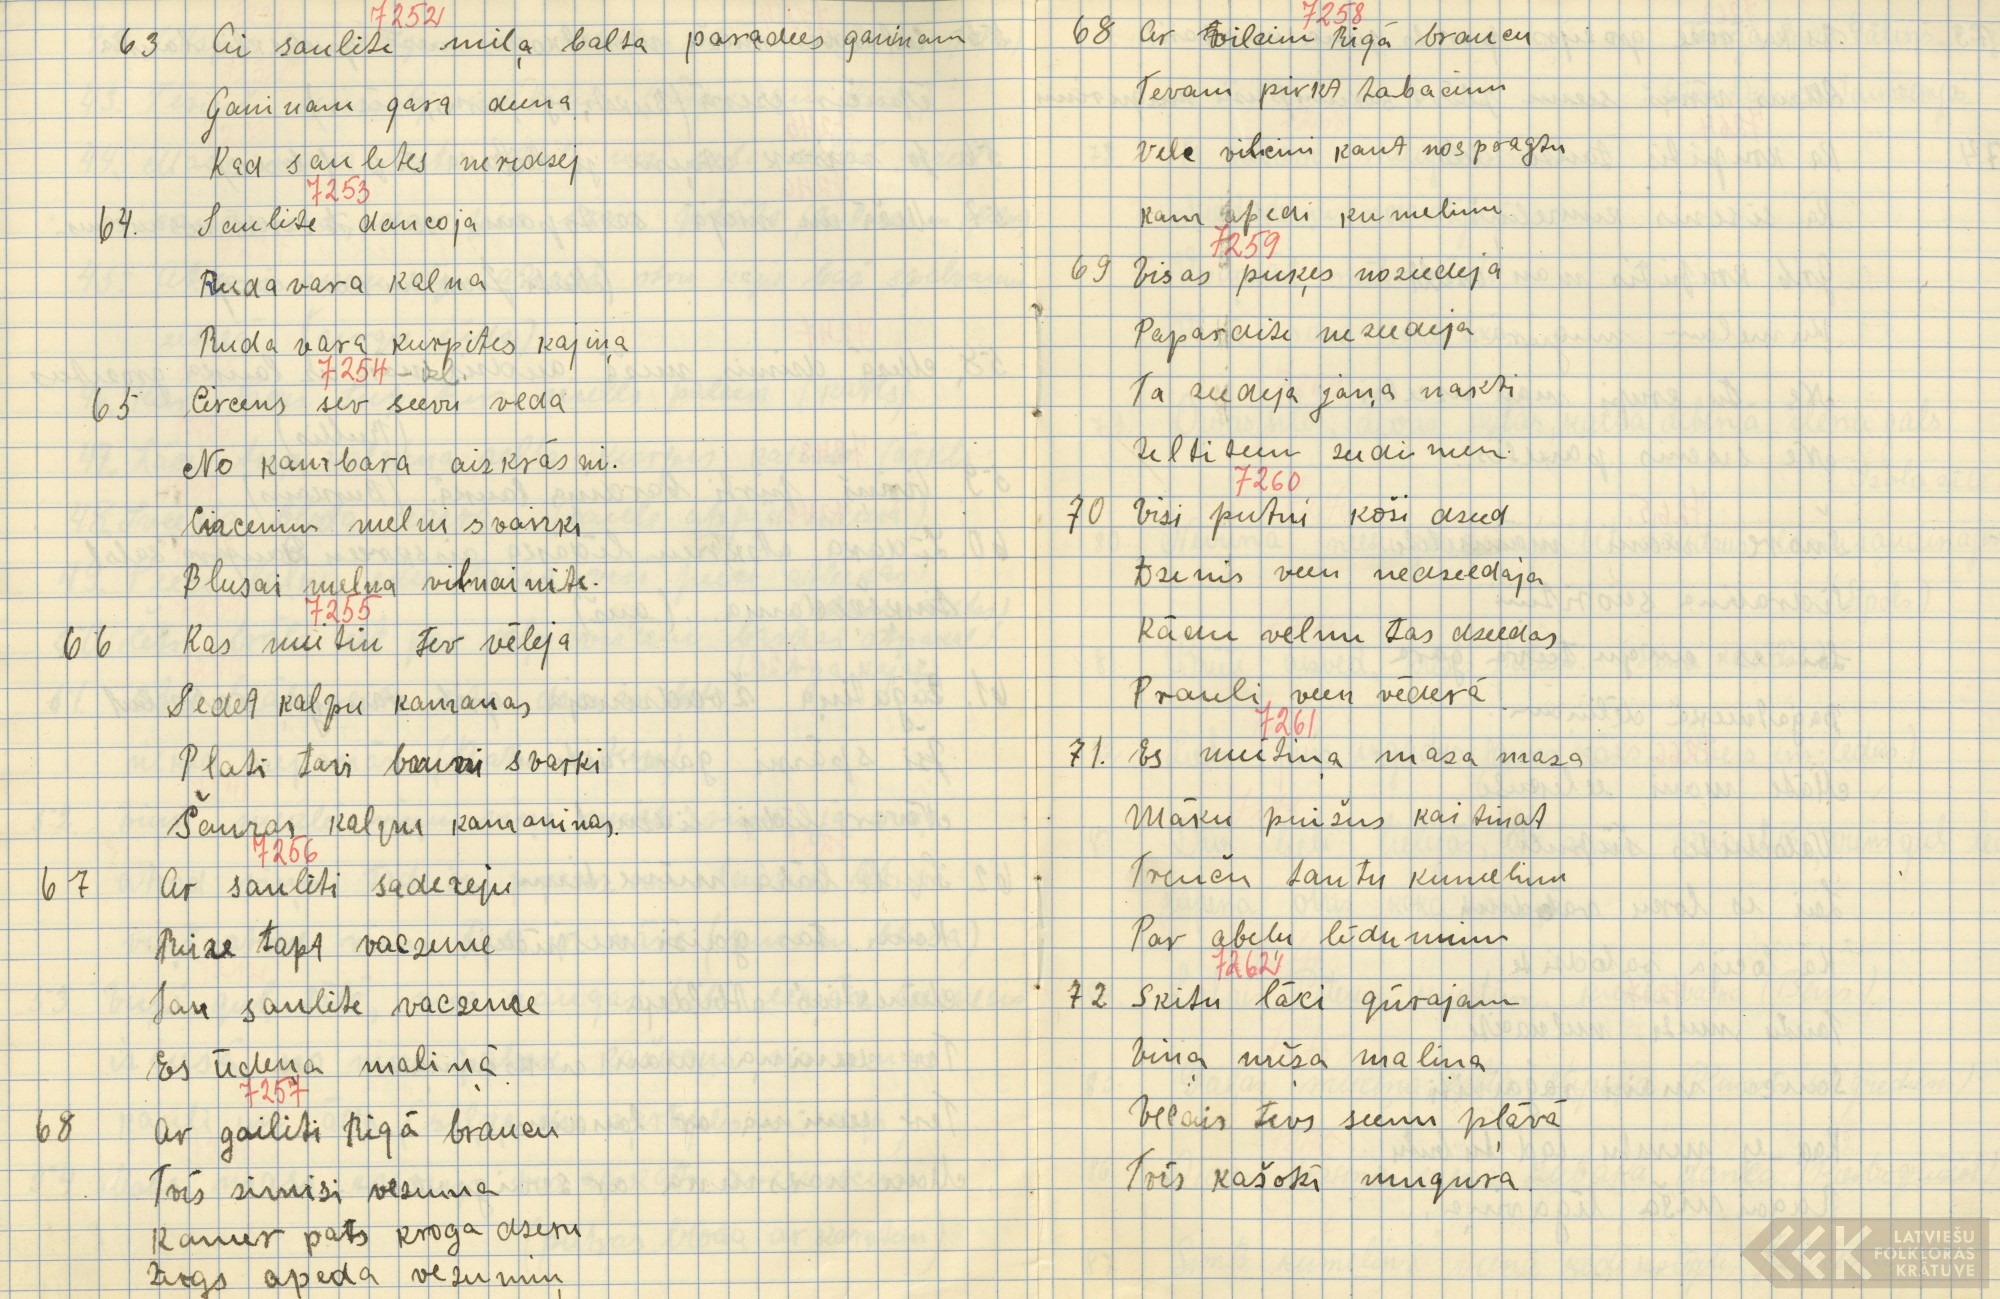 7252
63 Ai saulite miļa balta paradees ganinam
Ganinam gara deena
Kad saulites neredzej
7253
64. Saulite dancoja
Ruda vara kalna
Ruda vara kurpites kajiņa
7254
65 Circens sev seevu veda
No kambara aizkrāsni.
Circenim melni svarki
Blusai melna vilnainite.
7255
66 Kas meitiņ tev vēleja
Sedet kalpu kamanas
Plati tavi bruni svarki
Šauras kalpu kamaninas.
7256
67 Ar sauliti sadereju
Reize tapt vaczeme
Jau saulite vaczeme
Es ūdeņa maliņā
7257
68 Ar gailiti Rigā braucu
Trīs simisi vezuma
Kamer pats kroga dzeru
Zirgs apeda vezumiņ
7258
68 Ar vilcim Rigā braucu
Tevam pirkt tabacim
Vele vilcini kaut nospragtu
kam apedi kumelim
7259
69 Visas puķes nozeedeja
Papardite nezeedeja
Ta zeedeja jaņa nakti
zeltiteem zeedimeem.
7260
70 Visi putni koši dzeed
Dzenis veen nedzeedaja
Kādu velnu tas dzeedas
Prauli veen vēderā
7261
71. Es meitiņa maza maza
Māku puišus kaitinat
Trenču tautu kumelim
Par abeļu līdumim
7262
72 Skitu lāci gūrajam
Viņa mīža malina
Vecais tevs seenu pļāvā
Trīs kašoki mugura
LATVIEŠU
FOLKLORAS
KRĀTUVE